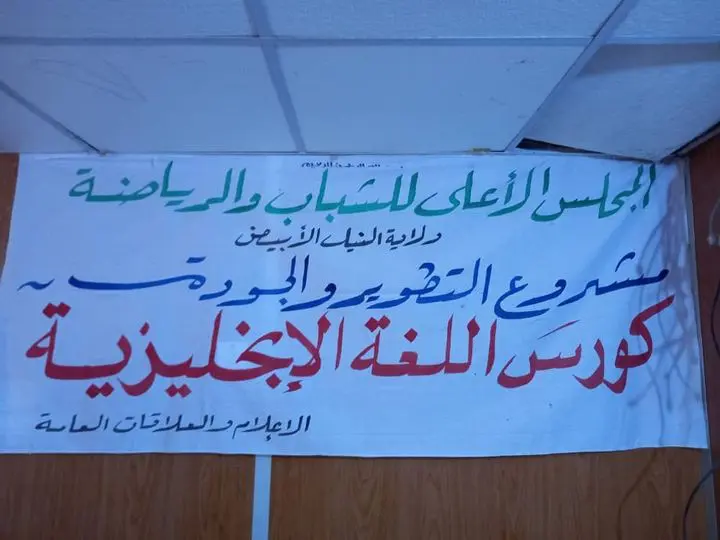 المجلس الأعلى للشباب والرياضة
ولاية النيل الأبيض
مشروع التطوير والجودة
كورس اللغة الإنجليزية
الإعلام والعلاقات العامة